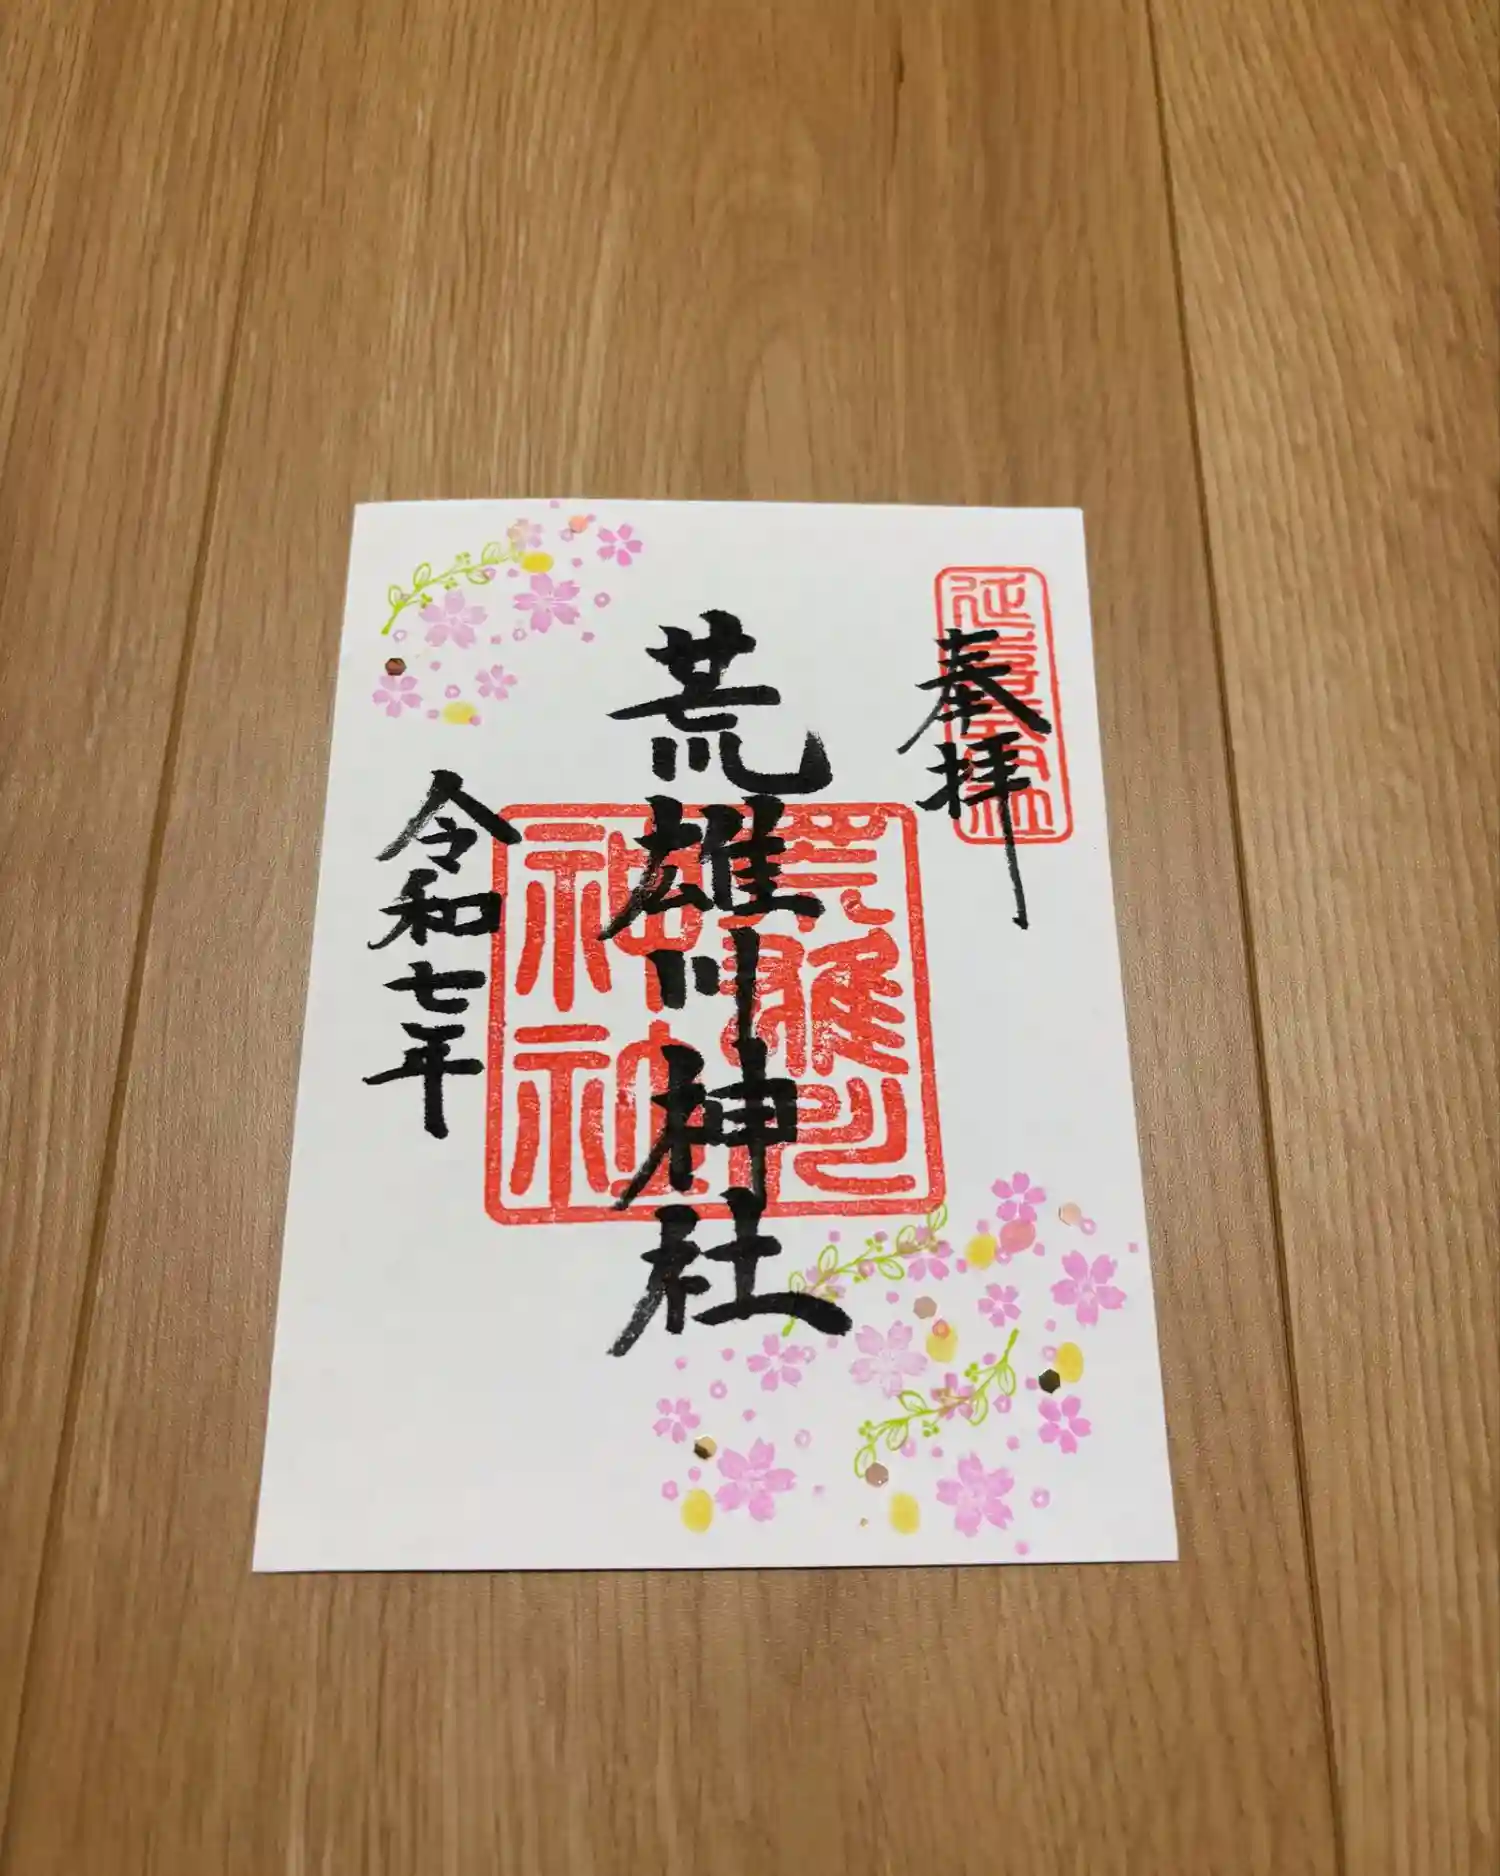 奉拝
延喜式内社
荒雄川神社
荒雄川神社神印
令和七年